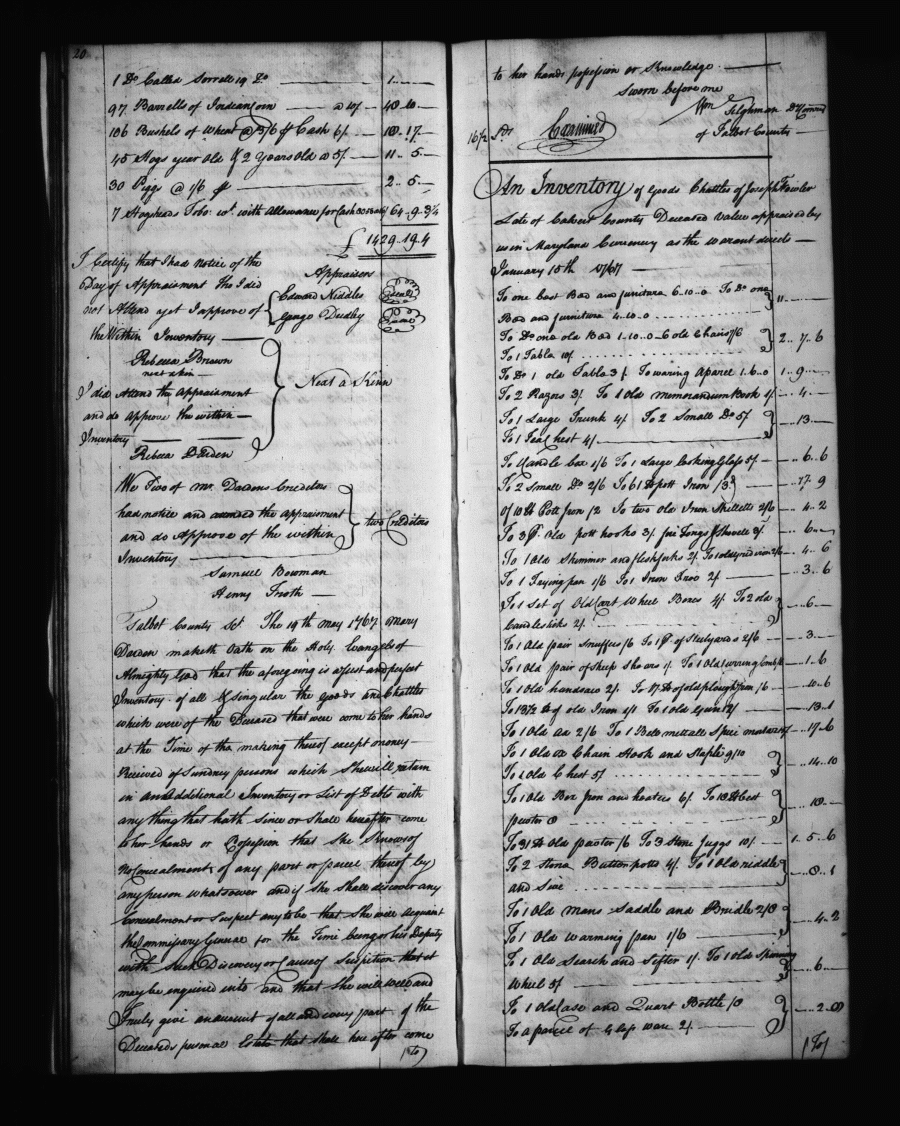 20
1 Do Called Sorrell 19 Do — 1..—
97 Barrells of Indian Corn — @ 10/ — 48..10..—
106 Bushels of Wheat @ 3/6 Cash 6/. — 18..17..—
45 Hogs year Old & 2 Years Old @ 5/. — 11..5..—
30 Piggs @ 1/6 — 2..5..—
7 Hogsheads Tobo. wt. with Allowance for Cask 64..9..3¼
£ 1429..19..4
I Certify that I had notice of the
6 Day of Appraisment tho I did
not Attend yet I approve of
the Within Inventory —
Rebecca Brown
near a kin —
I did Attend the Appraisment
and do Approve the within —
Inventory —
Rebeca Darden
Near a Kinn
Appraisers
Edward Neddles (Seal)
Gongo Dudley (Seal)
We Two of Mr. Dardens Creditors
had notice and attended the Appraisment
and do Approve of the within
Inventory —
two Creditors
Samuel Bowman
Henry Troth —
Talbot County Sct. The 19th May 1767 Mary
Darden maketh Oath on the Holy Evangels of
Almighty God that the aforegoing is a Just and perfect
Inventory of all & singular the goods and Chattles
which were of the Deceased that were come to her hands
at the Time of the making thereof except money —
Received of Sundrey persons which She will return
in an Additional Inventory or List of Debts with
any thing that hath since or shall hereafter come
to her hands or Possession that she Knows of
No Concealment of any part or parcel thereof by
any person whatsoever and if she shall discover any
Concealment or Suspect any to be that she will acquaint
the Commissary General for the Time being or his Deputy
with Such Discovery or Cause of Suspition that it
may be enquired into and that she will well and
Truly give an account of all and every part of the
Deceaseds personal Estate that shall here after come
(To)
to her hands possession or Knowledge —
Sworn before me
Wm Tilghman Dy Commry
of Talbot County —
16½ Sds Examined
An Inventory of goods Chattles of Joseph Fowler
Late of Calvert County Deceased Value appraised by
us in Maryland Currency as the warant directs —
January 15th 1767 —
To one best Bed and furniture 6..10..0 To Do one
Bed and furniture 4..10..0 } 11..—
To Do one old Bed 1..10..0 6 ole Chairs 7/6
To 1 Table 10/. } 2..7..6
To Do 1 old Table 3/. To waring Aparel 1..6..0 1..9..—
To 2 Razors 3/. To 1 Old Memorandum Book 1/ —..4..—
To 1 Large Trunk 4/. To 2 Small Do 5/
To 1 Tea Chest 4/. } —..13..—
To 1 Candle box 1/6 To 1 Large looking Glass 5/ — ..6..6
To 2 Small Do 2/6 To 61 lb pott Iron — ..17..9
of 10 lb Pott Iron /2 To two old Iron Skilletts 2/6 — ..4..2
To 3 pr. Old pott hooks 3/. fire Tongs & Shovele 3/. ..6..—
To 1 Old Skimmer and fleshforks 2/. To 1 old gridiron 2/6 ..4..6
To 1 Frying pan 1/6 To 1 Iron 2/. — ..3..6
To 1 Set of Old Cart Wheel Boxes 4/. To 2 old
Candlesticks 2/. } —..6..—
To 1 Old pair Snuffers /6 To 1 pr. of Steelyards 2/6 — ..3..—
To 1 Old pair of Sheep Shears To 1 Old —..1..6
To 1 Old handsaw 2/. To 17 lb of old plough Iron /6 — ..10..6
To 137½ lb of old Iron To 1 old Gun — ..13..1
To 1 Old ax 2/6 To 1 Bell mettall Spice mortar — ..17..6
To 1 Old ox Chain Hook and Staple 9/10
To 1 Old Chest 5/ } ..14..10
To 1 Old Box Iron and heaters 6/. To 18 lb best
pewter } ..18..—
To 31 lb Old pewter /6 To 3 Stone Juggs 10/. — 1..5..6
To 2 Stone Butter potts 4/. To 1 Old riddle
and Sive } —..8..1
To 1 Old Mans Saddle and Bridle 2/8
To 1 Old warming pan 1/6 } ..4..2
To 1 Old Search and Sifter 1/. To 1 old Spinning
Wheel 5/ } ..6..—
To 1 Old Case and Quart Bottle /8
To a parcel of Glass ware 2/. } ..2..8
(To)